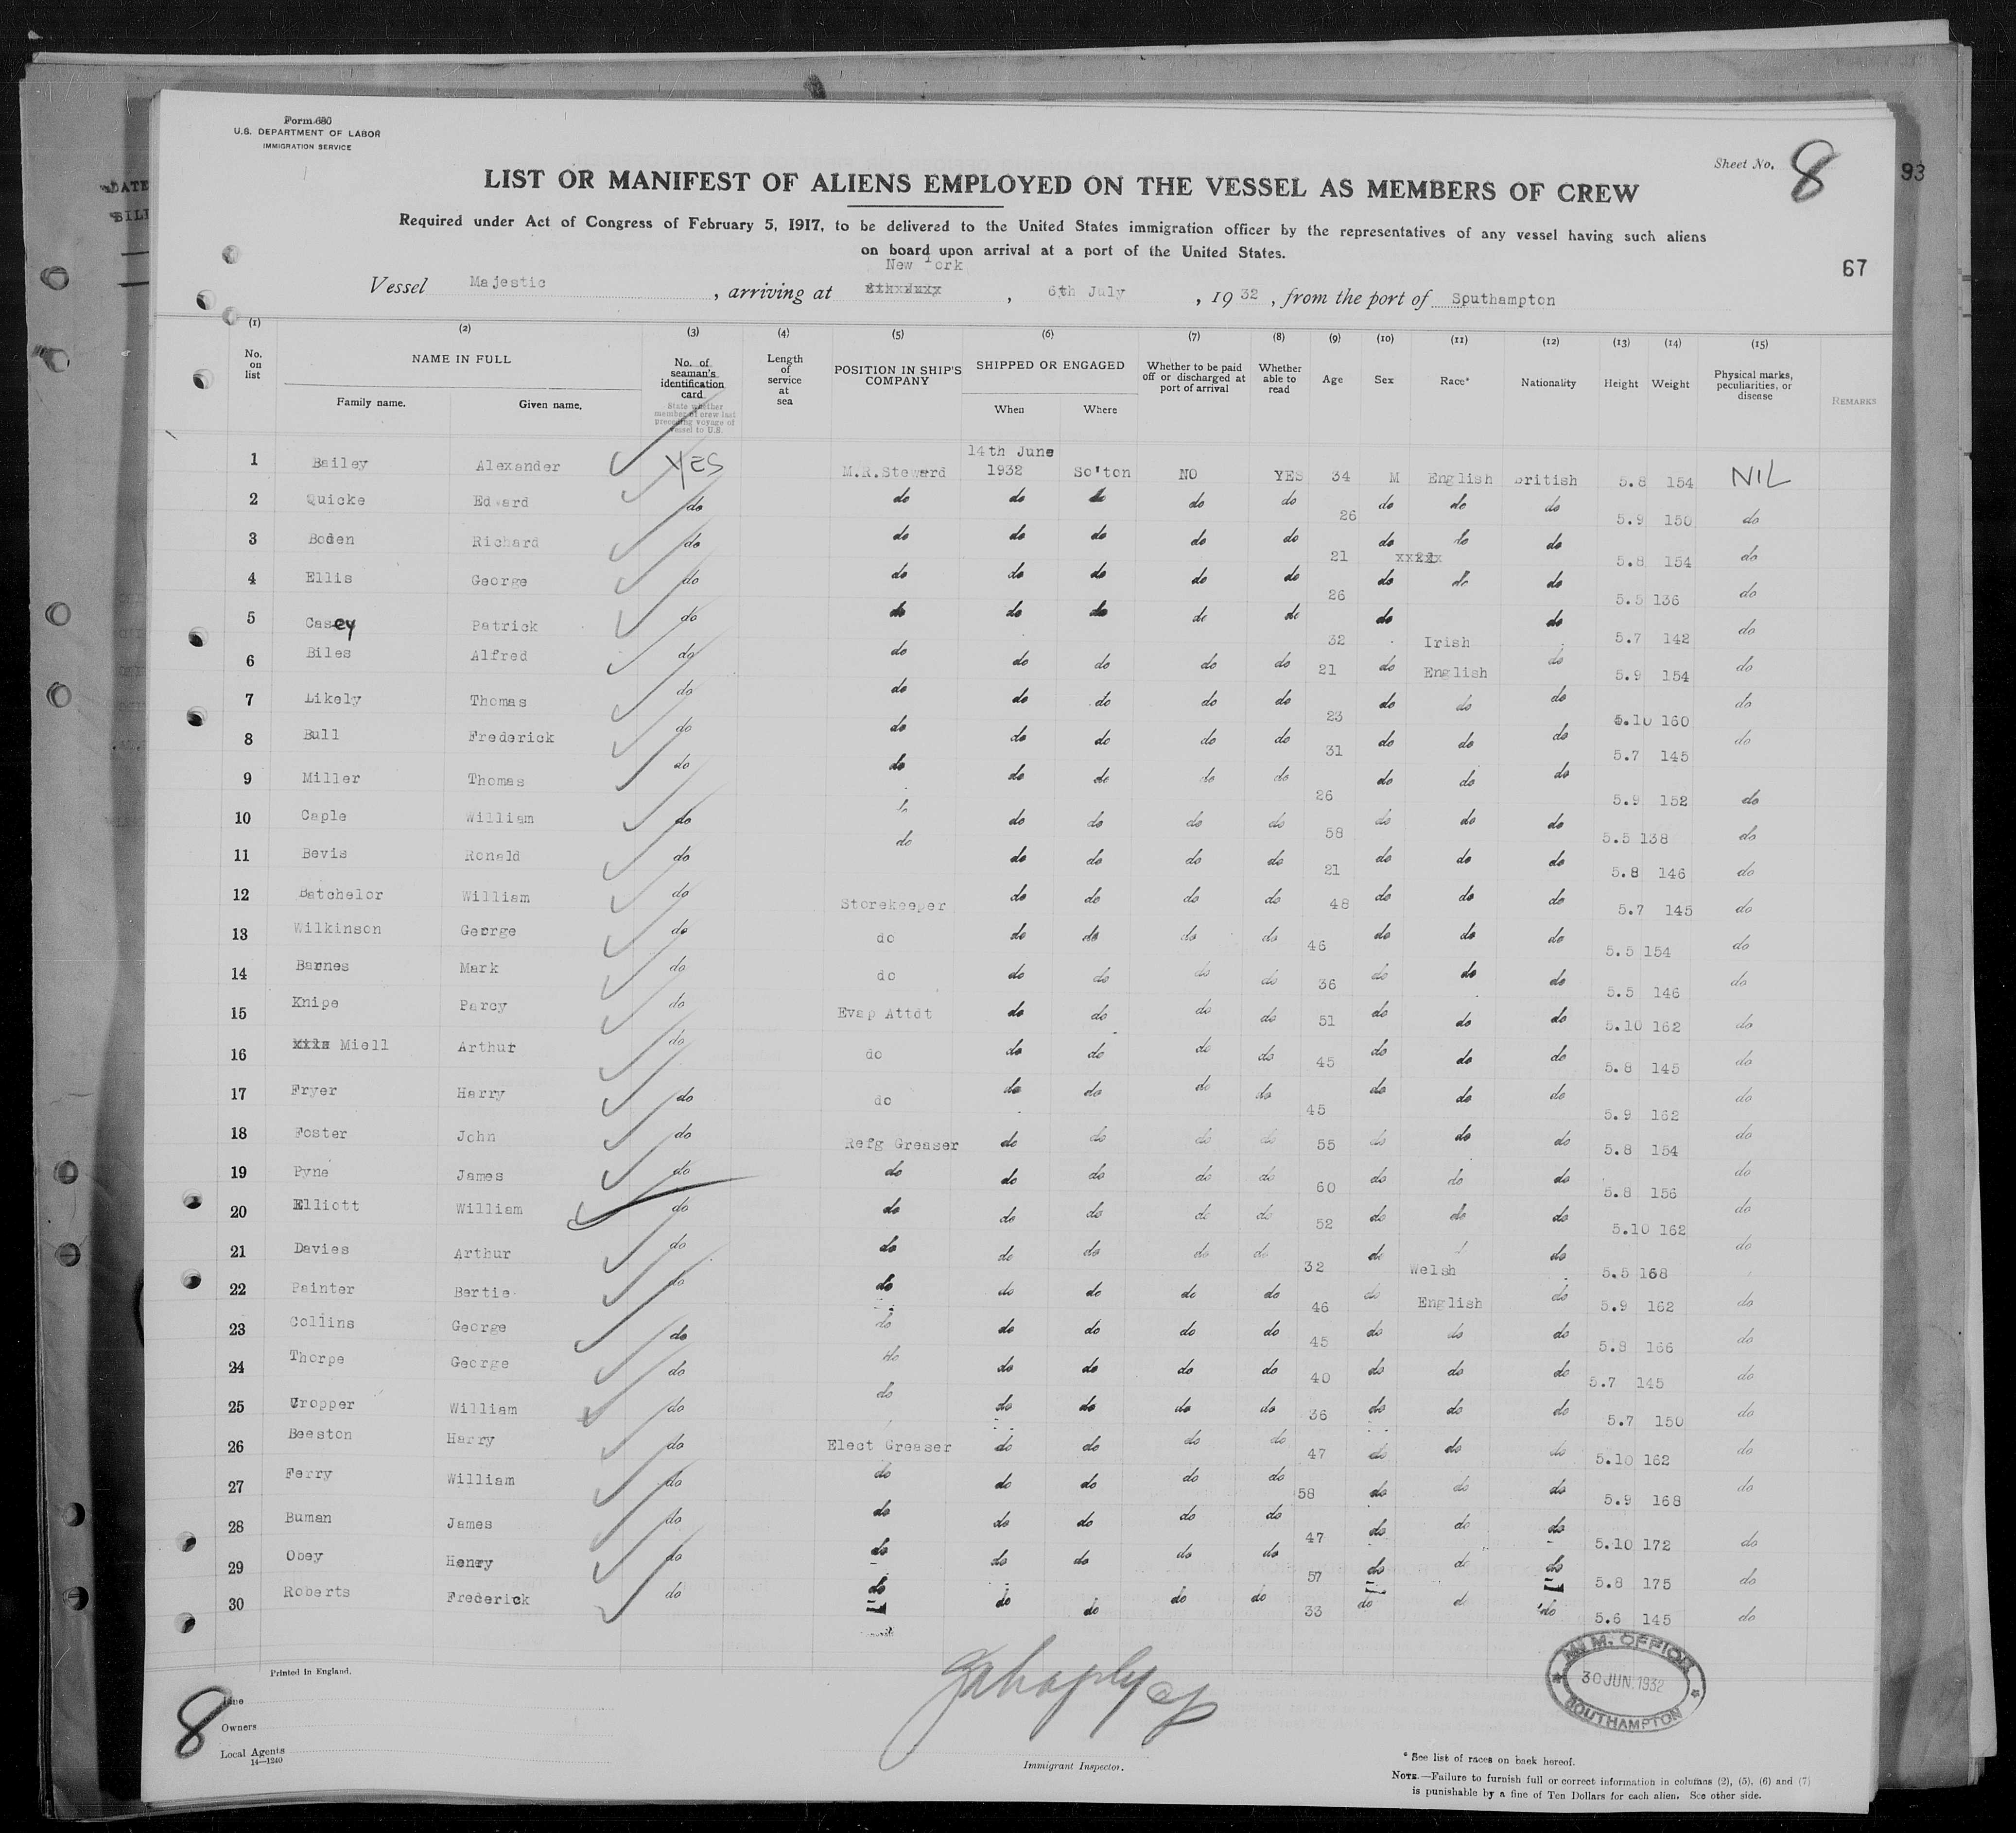 Form 680
U.S. DEPARTMENT OF LABOR
IMMIGRATION SERVICE
Sheet No. 8
93
LIST OR MANIFEST OF ALIENS EMPLOYED ON THE VESSEL AS MEMBERS OF CREW
Required under Act of Congress of February 5, 1917, to be delivered to the United States immigration officer by the representatives of any vessel having such aliens
on board upon arrival at a port of the United States.
67
New York
Vessel Majestic, arriving at , 6th July, 1932, from the port of Southampton
(1) (2) (3) (4) (5) (6) (7) (8) (9) (10) (11) (12) (13) (14) (15)
No. on list NAME IN FULL Family name. Given name. No. of seaman's identification card State whether member of crew last preceding voyage of vessel to U.S. Length of service at sea POSITION IN SHIP'S COMPANY SHIPPED OR ENGAGED When Where Whether to be paid off or discharged at port of arrival Whether able to read Age Sex Race* Nationality Height Weight Physical marks, peculiarities, or disease REMARKS
1 Bailey Alexander YES M.R.Steward 14th June 1932 So'ton NO YES 34 M English British 5.8 154 NIL
2 Quicke Edward do do do do do do 26 do do do 5.9 150 do
3 Boden Richard do do do do do do 21 do do do 5.8 154 do
4 Ellis George do do do do do do 26 do do do 5.5 136 do
5 Casey Patrick do do do do do do 32 do Irish do 5.7 142 do
6 Biles Alfred do do do do do do 21 do English do 5.9 154 do
7 Likely Thomas do do do do do do 23 do do do 5.10 160 do
8 Bull Frederick do do do do do do 31 do do do 5.7 145 do
9 Miller Thomas do do do do do do 26 do do do 5.9 152 do
10 Caple William do do do do do do 58 do do do 5.5 138 do
11 Bevis Ronald do do do do do do 21 do do do 5.8 146 do
12 Batchelor William do Storekeeper do do do do 48 do do do 5.7 145 do
13 Wilkinson George do do do do do do 46 do do do 5.5 154 do
14 Barnes Mark do do do do do do 36 do do do 5.5 146 do
15 Knipe Percy do Evap Attdt do do do do 51 do do do 5.10 162 do
16 Miell Arthur do do do do do do 45 do do do 5.8 145 do
17 Fryer Harry do do do do do do 45 do do do 5.9 162 do
18 Foster John do Refg Greaser do do do do 55 do do do 5.8 154 do
19 Pyne James do do do do do do 60 do do do 5.8 156 do
20 Elliott William do do do do do do 52 do do do 5.10 162 do
21 Davies Arthur do do do do do do 32 do Welsh do 5.5 168 do
22 Painter Bertie do do do do do do 46 do English do 5.9 162 do
23 Collins George do do do do do do 45 do do do 5.8 166 do
24 Thorpe George do do do do do do 40 do do do 5.7 145 do
25 Cropper William do do do do do do 36 do do do 5.7 150 do
26 Beeston Harry do Elect Greaser do do do do 47 do do do 5.10 162 do
27 Ferry William do do do do do do 58 do do do 5.9 168 do
28 Buman James do do do do do do 47 do do do 5.10 172 do
29 Obey Henry do do do do do do 57 do do do 5.8 175 do
30 Roberts Frederick do do do do do do 33 do do do 5.6 145 do
Printed in England.
8
Line
Owners
Local Agents
14—1240
Immigrant Inspector.
30 JUN. 1932
SOUTHAMPTON
* See list of races on back hereof.
NOTE.—Failure to furnish full or correct information in columns (2), (5), (6) and (7)
is punishable by a fine of Ten Dollars for each alien. See other side.